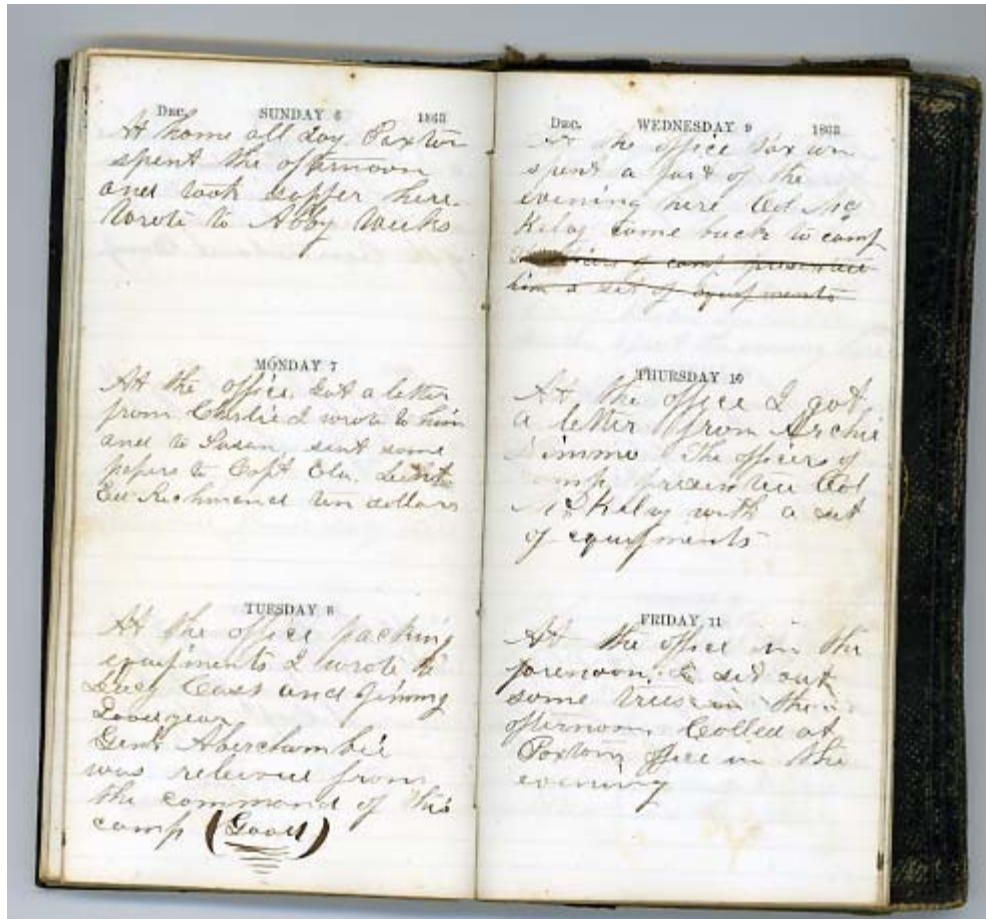 DEC. SUNDAY 6 1863
At home all day Paxton
spent the afternoon
and took supper here.
Wrote to Abby Weeks
MONDAY 7
At the office. Got a letter
from Charlie I wrote to him
and to Susan, sent some
papers to Capt Ela. Lent
Ed Richmond ten dollars
TUESDAY 8
At the office packing
equipments I wrote to
Lucy East and Jimmy
Goodyear
Genl Aberchombie
was relieved from
the command of this
camp (Good)
DEC. WEDNESDAY 9 1863
At the office Paxton
spent a part of the
evening here Col Mc
Kelvy came back to camp
of camp presented
him a set of equipments
THURSDAY 10
At the office I got
a letter from Archie
Dimmo The officers of
camp presented Col
McKelvy with a set
of equipments
FRIDAY 11
At the office in the
forenoon, & set out
some trees in the
afternoon. Called at
Paxtons office in the
evening